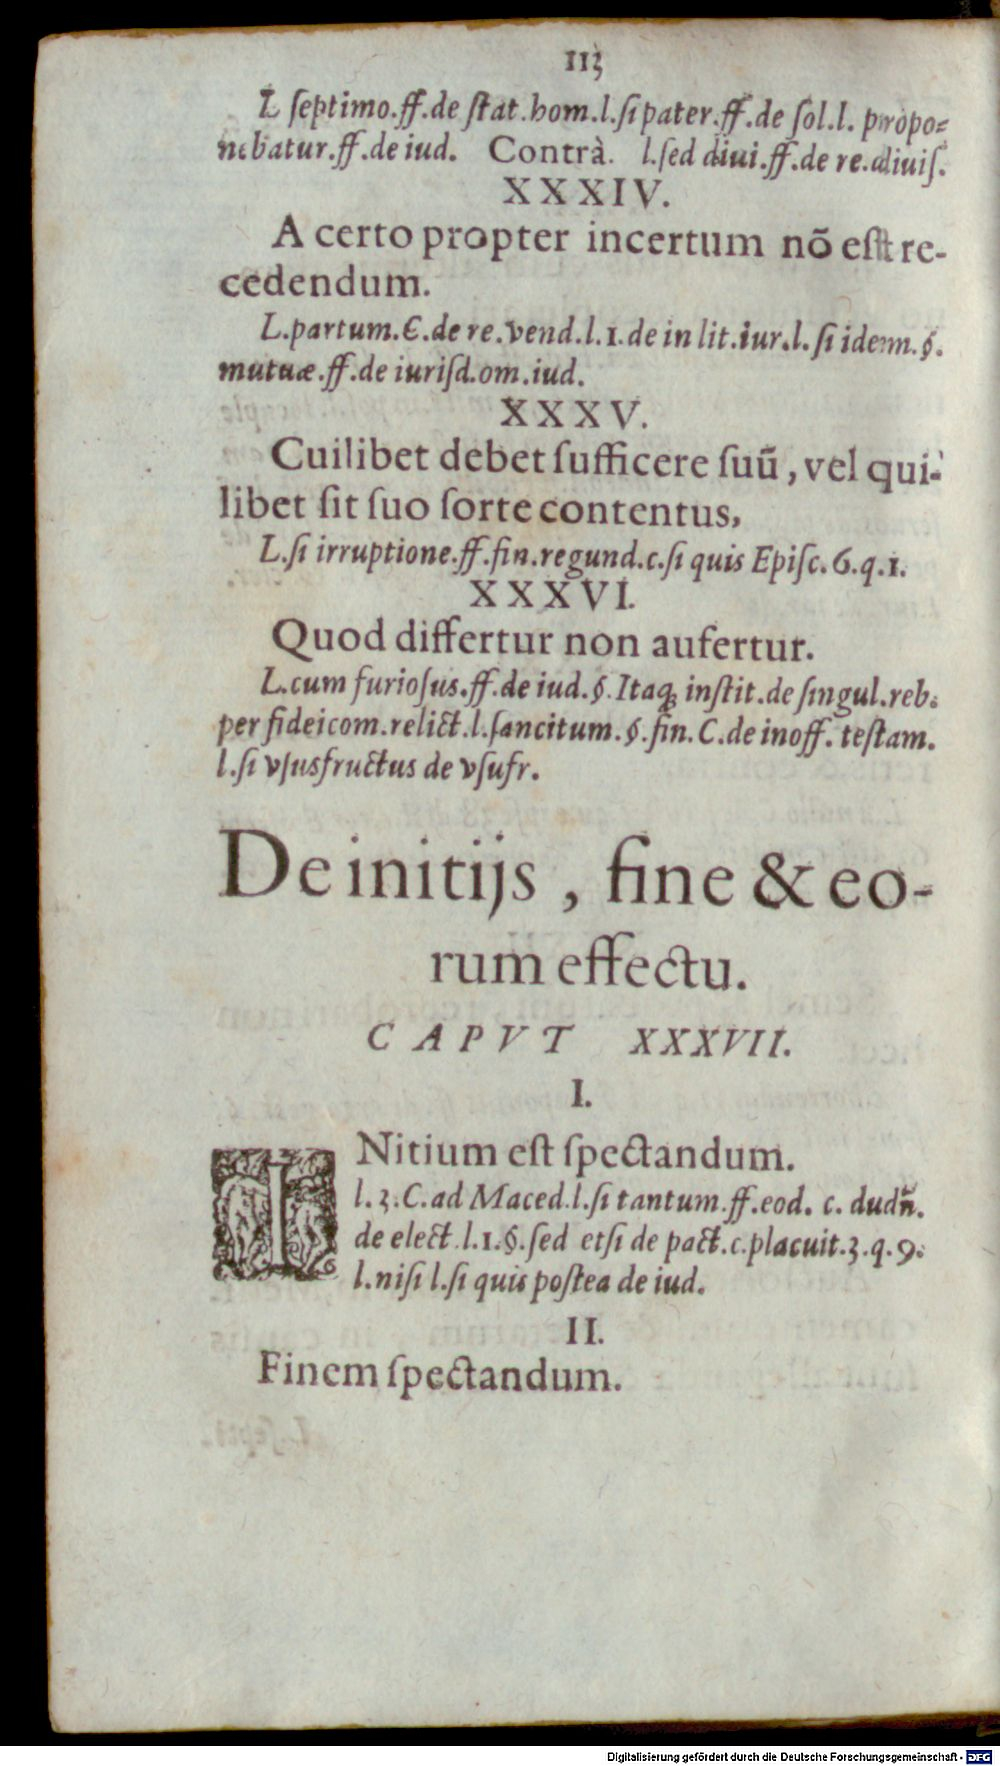 113
L septimo.ff.de ſtat.hom.l.ſi pater.ff.de ſol.l. propo=
nebatur.ff.de iud. Contrà. l.ſed diui.ff.de re.diuiſ.
XXXIV.
A certo propter incertum nõ eſt re-
cedendum.
L.partum.C.de re.vend.l.1.de in lit.iur.l.ſi idem.§.
mutuæ.ff.de iuriſd.om.iud.
XXXV.
Cuilibet debet ſufficere ſuũ, vel qui-
libet ſit ſuo ſorte contentus,
L.ſi irruptione.ff.fin.regund.c.ſi quis Epiſc.6.q.1.
XXXVI.
Quod differtur non aufertur.
L.cum furioſus.ff.de iud.§.Itaq; inſtit.de ſingul.reb.
per fideicom.relict.l.ſancitum.§.fin.C.de inoff. teſtam.
l.ſi vſusfructus de vſufr.
De initijs, fine & eo-
rum effectu.
CAPVT XXXVII.
I.
INitium eſt ſpectandum.
l.3.C.ad Maced.l.ſi tantum.ff.eod. c. dudũ.
de elect.l.1.§.ſed etſi de pact.c.placuit.3.q.9.
l.niſi l.ſi quis poſtea de iud.
II.
Finem ſpectandum.
Digitalisierung gefördert durch die Deutsche Forschungsgemeinschaft - DFG